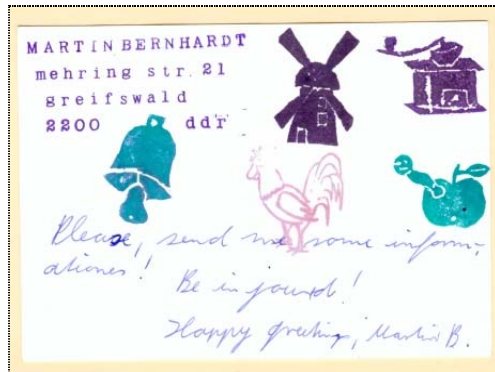 MARTIN BERNHARDT
mehring str. 21
greifswald
2200 ddr
Please, send me some inform-
ationes!
Be in
Happy greetings, Martin B.